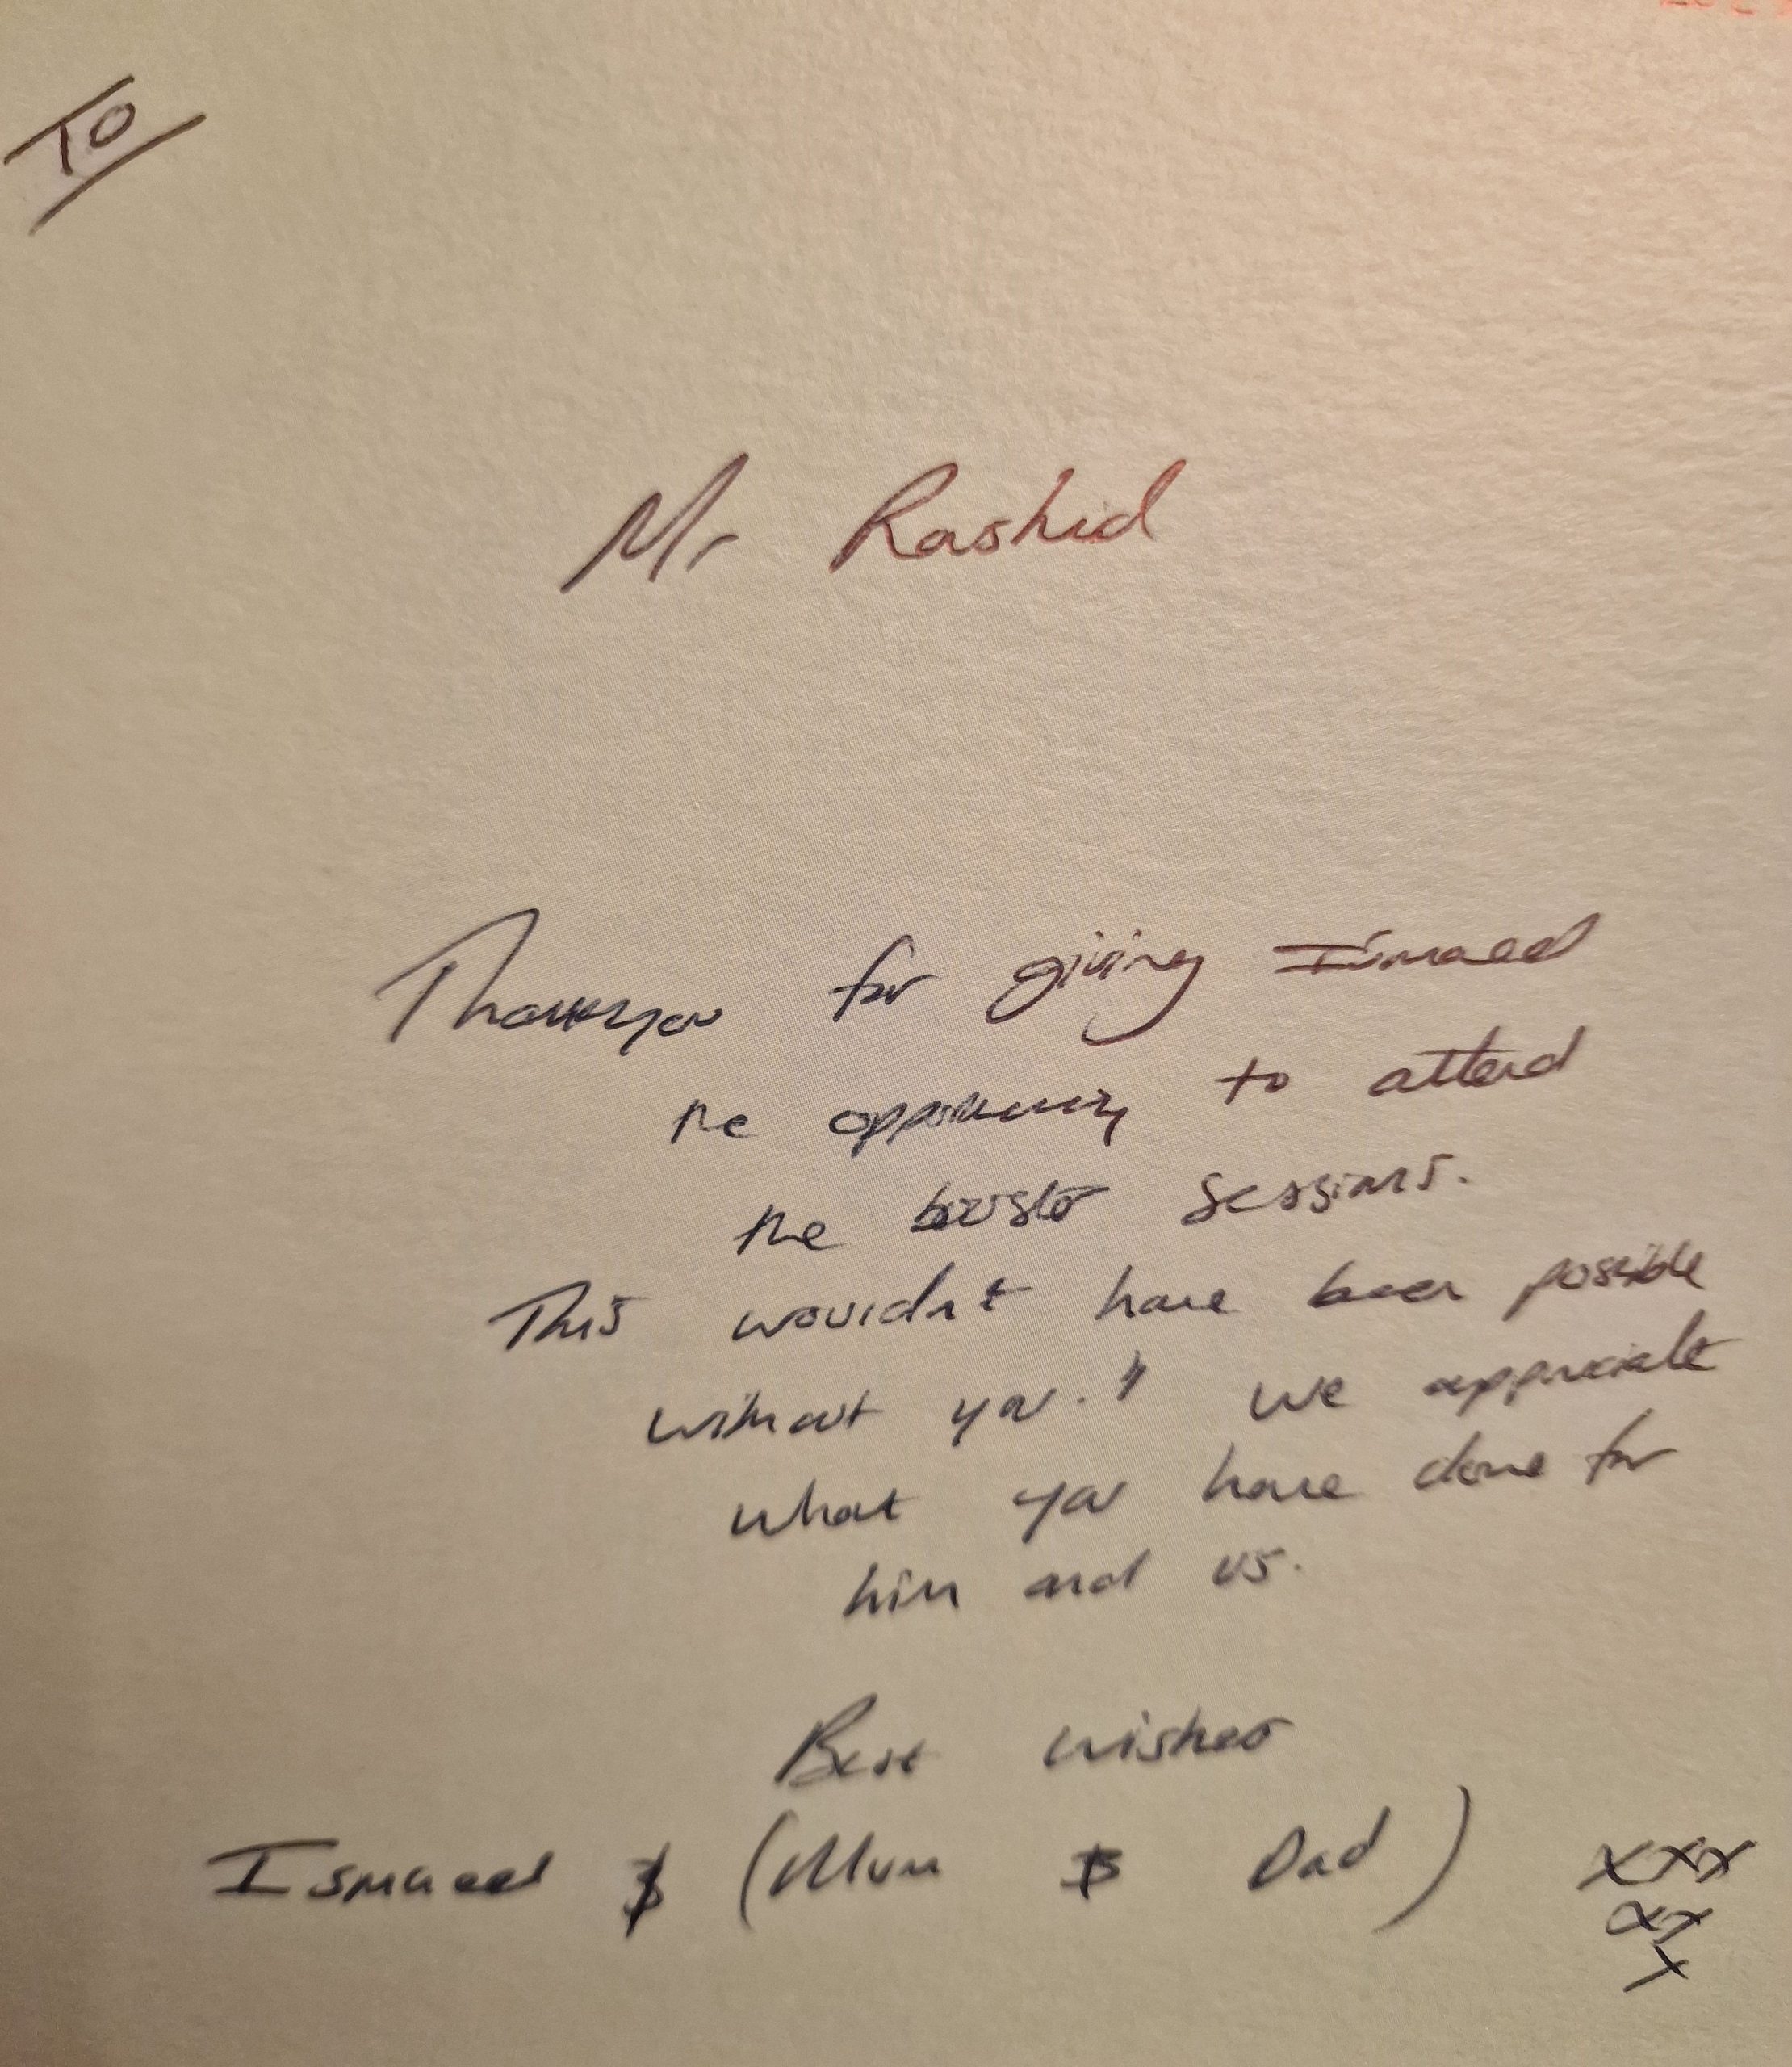 To
Mr Rashid
Thankyou for giving Ismaeel
the opportunity to attend
the booster sessions.
This wouldn't have been possible
without you." We appreciate
what you have done for
him and us.
Best wishes
Ismaeel & (Mum & Dad) xxx
xx
x